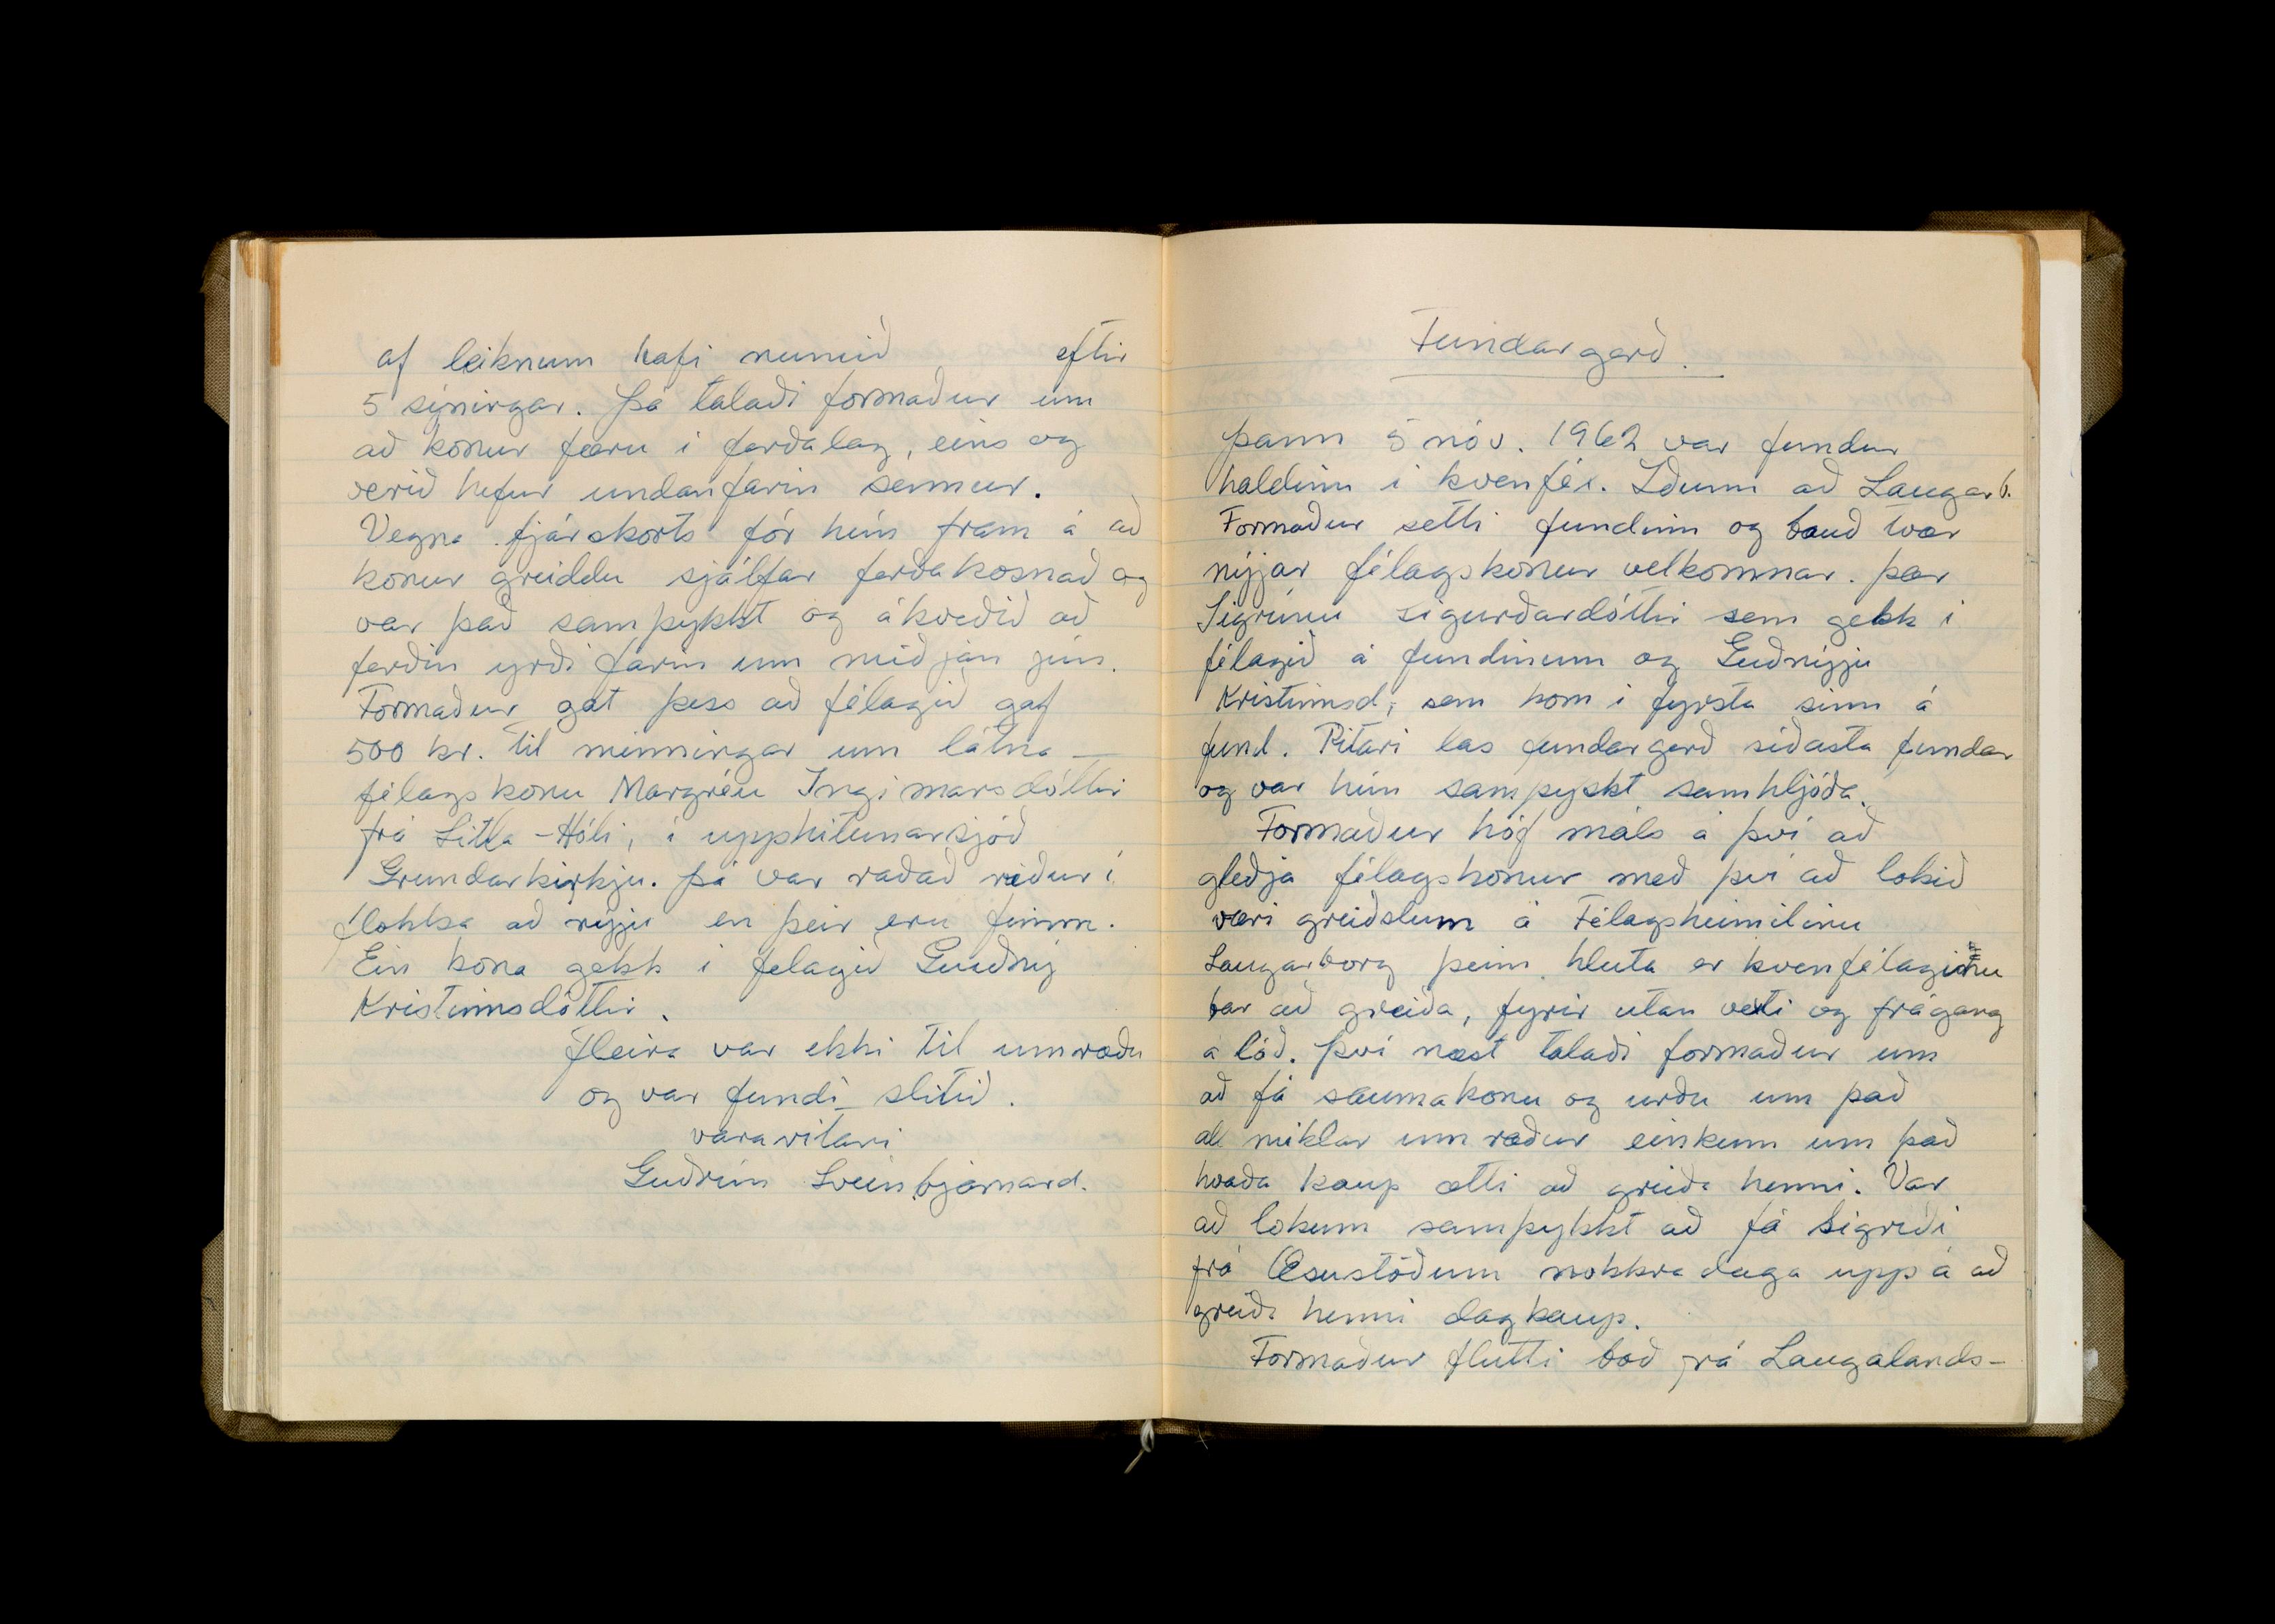 af leiknum hafi numið eftir
5 sýningar. Þá talaði formaður um
að konur færu í ferðalag, eins og
verið hefur undanfarin sumur.
Vegna fjárskorts fór hún fram á að
konur greiddu sjálfar ferðakosnað og
var það samþykkt og ákveðið að
ferðin yrði farin um miðjan jún.
Formaður gat þess að félagið gaf
500 kr. til minningar um látna
félagskonu Margréu Ingimarsdóttir
frá Litla-Hóli, í upphitunarsjóð
Grundarkirkju. Þá var raðað niður í
flokka að nýju en þeir eru fimm.
Ein kona gekk í felagið Guðný
Kristinsdóttir.
Fleira var ekki til umræðu
og var fundi slitið.
vararitari
Guðrún Sveinbjarnard.
Fundargerð.
Þann 5 nóv. 1962 var fundur
haldinn í kvenfél. Iðunn að Laugarb.
Formaður setti fundinn og bauð tvær
nýjar félagskonur velkomnar. Þær
Sigrúnu Sigurðardóttir sem gekk í
félagið á fundinum og Guðnýju
Kristinsd, sem kom í fyrsta sinn á
fund. Ritari las fundargerð síðasta fundar
og var hún samþyskt samhljóða.
Formaður hóf máls á því að
gleðja félagskonur með því að lokið
væri greiðslum á Félagsheimilinu
Laugarborg þeim hluta er kvenfélaginu
bar að greiða, fyrir utan vexti og frágang
á lóð. Því næst talaði formaður um
að fá saumakonu og urðu um það
all miklar umræður einkum um það
hvaða kaup ætti að greiða henni. Var
að lokum samþykkt að fá Sigríði
frá Æsustöðum nokkra daga upp á að
greiða henni dagkaup.
Formaður flutti boð frá Laugalands-